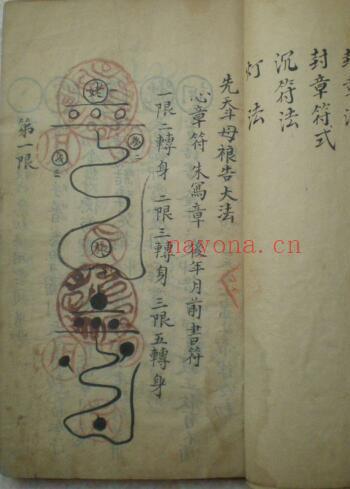 封章符式
沉符法
灯法
先天斗母禳告大法
心章符 朱寫章 後年月前書符
一限二轉身 二限三轉身 三限五轉身
第一限
nayona.cn